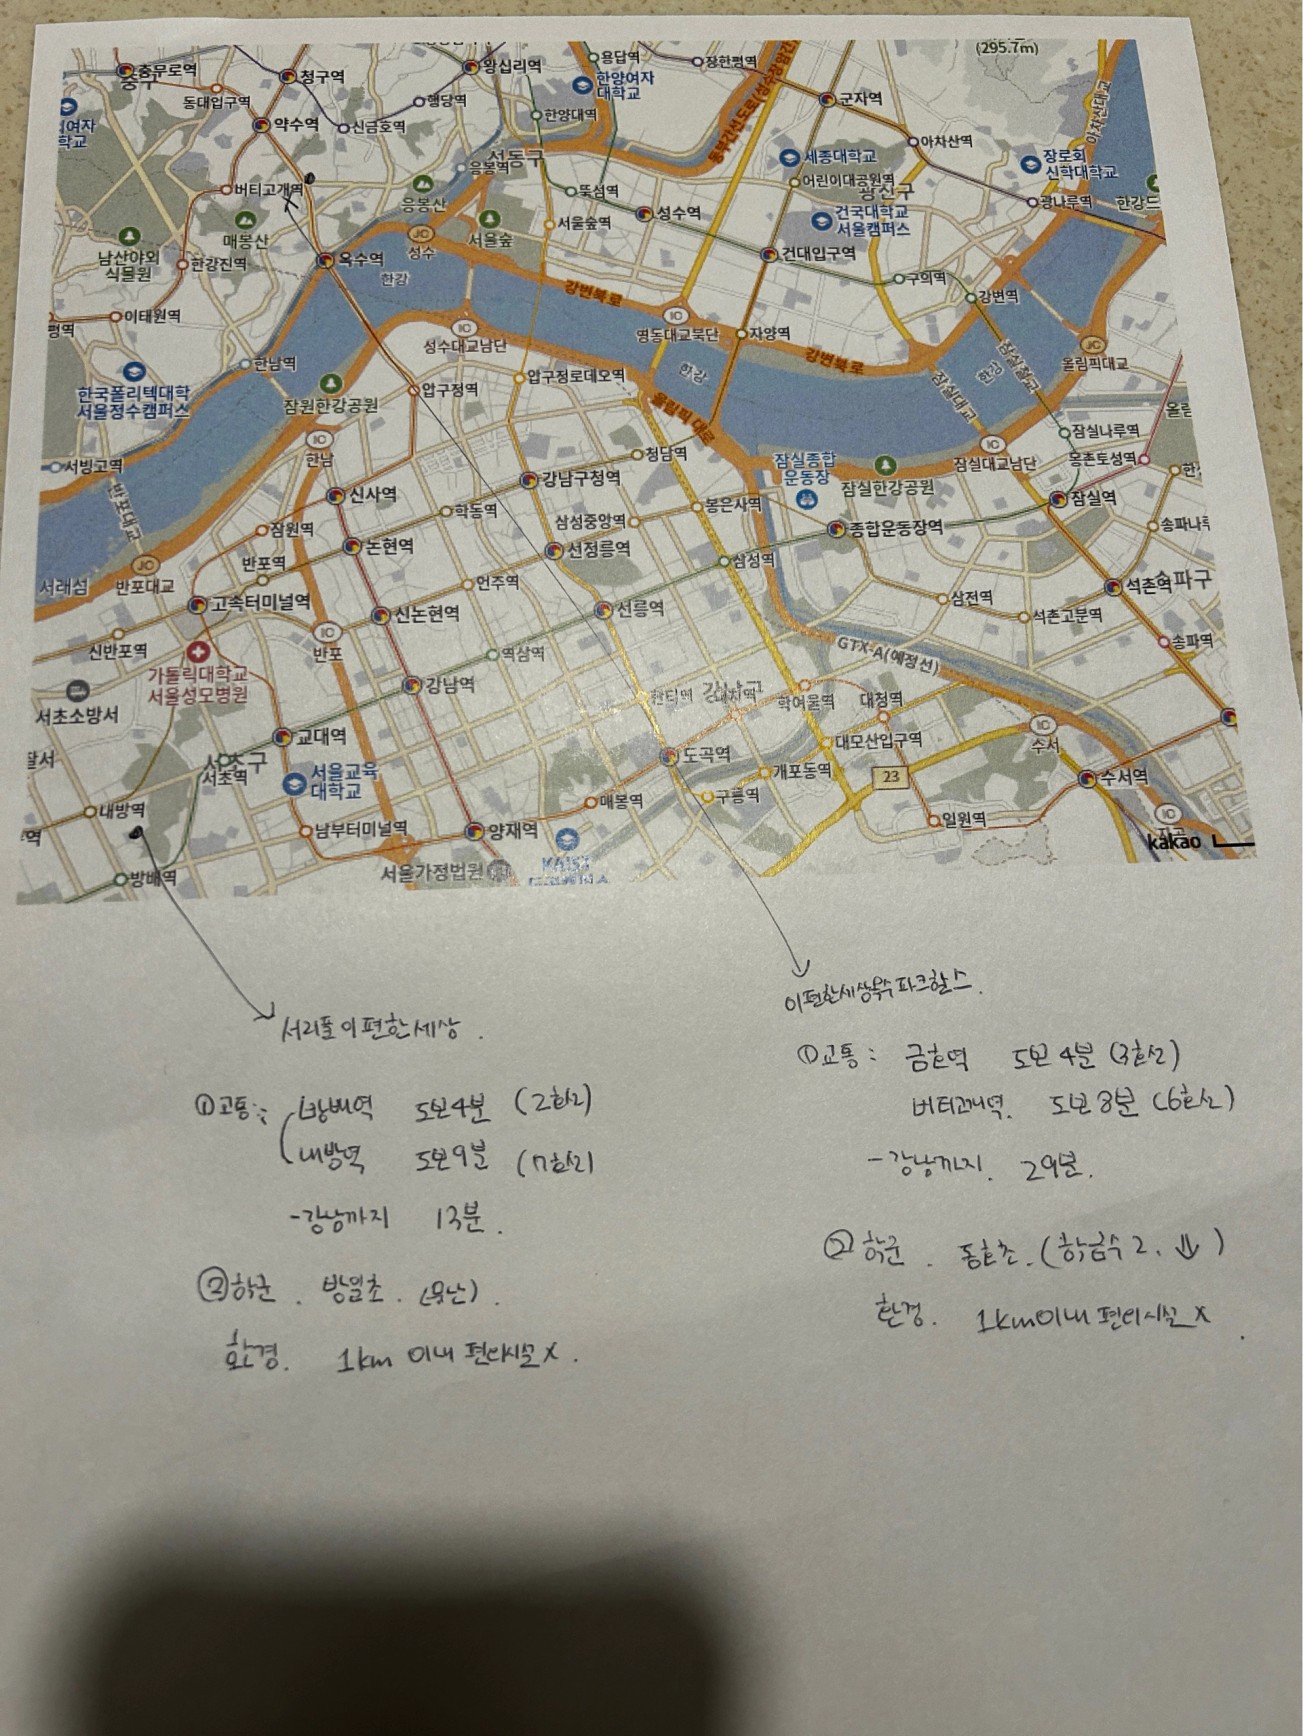 (295.7m)
충무로역
중구
청구역
왕십리역
용답역
장한평역
한양여자
대학교
동대입구역
행당역
군자역
약수역
신금호역
한양대역
여자
학교
성동구
아차산역
세종대학교
장로회
신학대학교
응봉역
버티고개역
응봉산
뚝섬역
어린이대공원역
광진구
광나루역
한강드
성수역
서울숲역
건국대학교
서울캠퍼스
매봉산
서울숲
남산야외
식물원
한강진역
옥수역
JC
성수
건대입구역
한강
구의역
강변북로
강변역
평역
이태원역
IC
성수대교남단
IC
영동대교북단
자양역
강변북로
잠실철교
JC
올림픽대교
한남역
한국폴리텍대학
서울정수캠퍼스
잠원한강공원
압구정역
압구정로데오역
한강
올림픽 대로
잠실대교
한강
올림
IC
한남
청담역
잠실나루역
서빙고역
잠실종합
운동장
잠실한강공원
IC
잠실대교남단
몽촌토성역
반포대교
신사역
강남구청역
잠실역
학동역
봉은사역
종합운동장역
삼성중앙역
송파나루
잠원역
논현역
선정릉역
반포역
삼성역
서래섬
JC
반포대교
언주역
석촌역
송파구
고속터미널역
신논현역
선릉역
삼전역
석촌고분역
신반포역
IC
반포
역삼역
GTX-A(예정선)
송파역
가톨릭대학교
서울성모병원
강남역
한티역
강남구
대치역
학여울역
대청역
서초소방서
교대역
도곡역
대모산입구역
IC
수서
찰서
서초구
서초역
서울교육
대학교
개포동역
23
수서역
매봉역
구룡역
내방역
남부터미널역
양재역
일원역
IC
역
서울가정법원
KAIST
kakao
방배역
이편한세상옥수파크힐스.
서리풀이편한세상.
①교통: 금호역 도보4분 (3호선)
버티고개역. 도보8분 (6호선)
-강남까지. 29분.
①교통: 방배역 도보4분 (2호선)
내방역 도보9분 (7호선)
-강남까지 13분.
②학군. 동호초. (학금수 2. ⇓)
환경. 1km이내 편의시설 x.
②학군. 방일초. (무난).
환경. 1km 이내 편의시설 x.